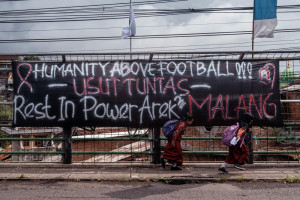 HUMANITY ABOVE FOOTBALL !!!
— USUT TUNTAS —
Rest In Power Arek² MALANG